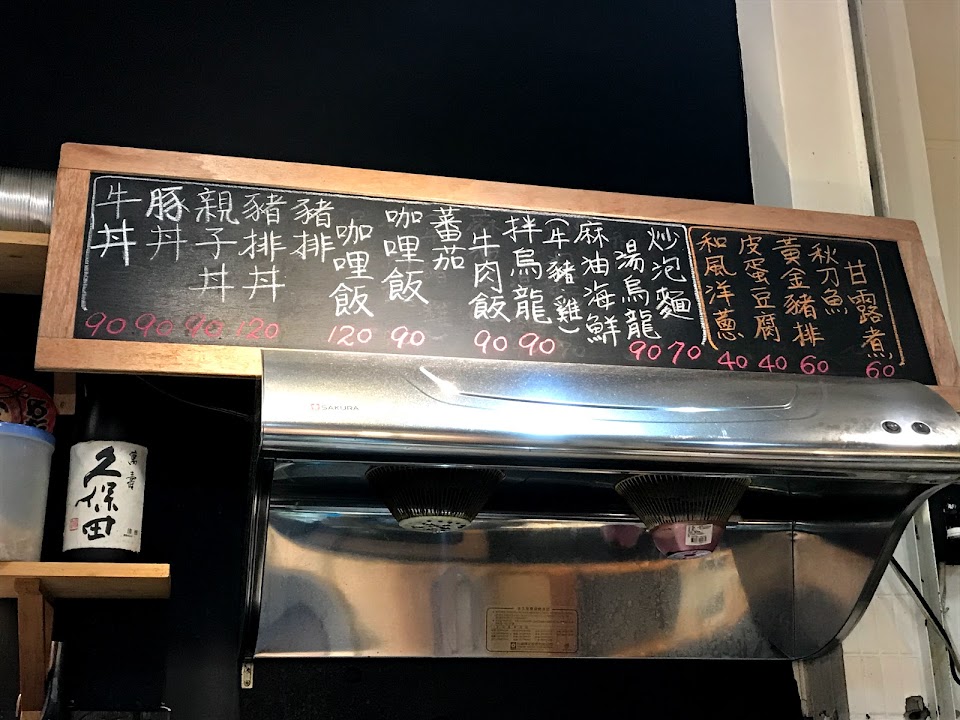 牛丼
90
豚丼
90
親子丼
90
豬排丼
120
豬排
咖哩飯
120
咖哩飯
90
蕃茄
牛肉飯
90
拌烏龍
90
(牛豬雞)
麻油海鮮
湯烏龍
90
炒泡麵
70
和風洋蔥
40
皮蛋豆腐
40
黃金豬排
60
秋刀魚
甘露煮
60
SAKURA
萬壽
久保田